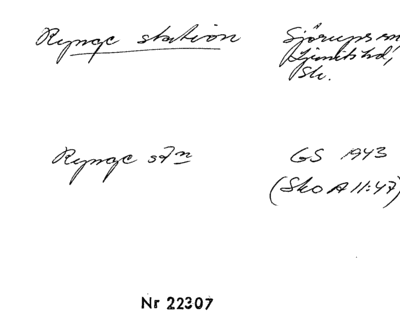 Rynge station
Sjörups sn
Ljunits hd,
Sk.
Rynge st:n
GS 1943
(Sko A 11:47)
Nr 22307